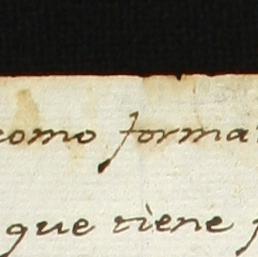 como forma
que tiene